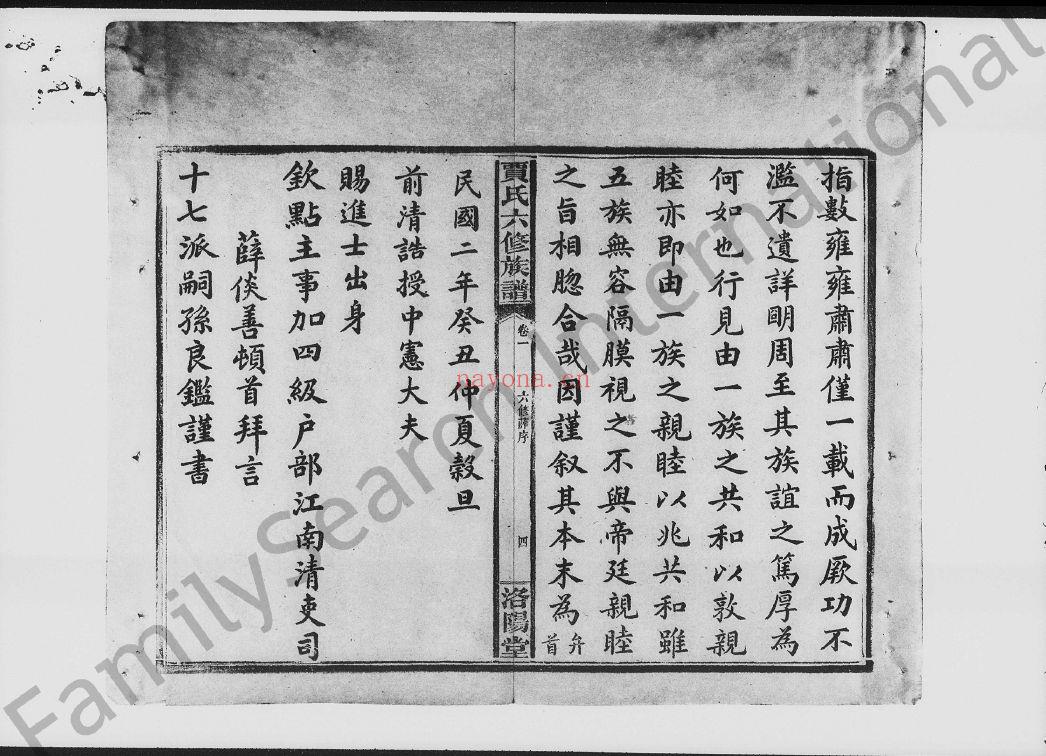 指數雍雍肅肅僅一載而成厥功不
濫不遺詳明周至其族誼之篤厚為
何如也行見由一族之共和以敦親
睦亦即由一族之親睦以兆共和雖
五族無容隔膜視之不與帝廷親睦
之旨相脗合哉因謹叙其本末為弁首
賈氏六修族譜
卷一
六修薛序
四
洛陽堂
民國二年癸丑仲夏穀旦
前清誥授中憲大夫
賜進士出身
欽點主事加四級户部江南清吏司
薛倓善頓首拜言
十七派嗣孫良鑑謹書
nayona.cn
FamilySearch International